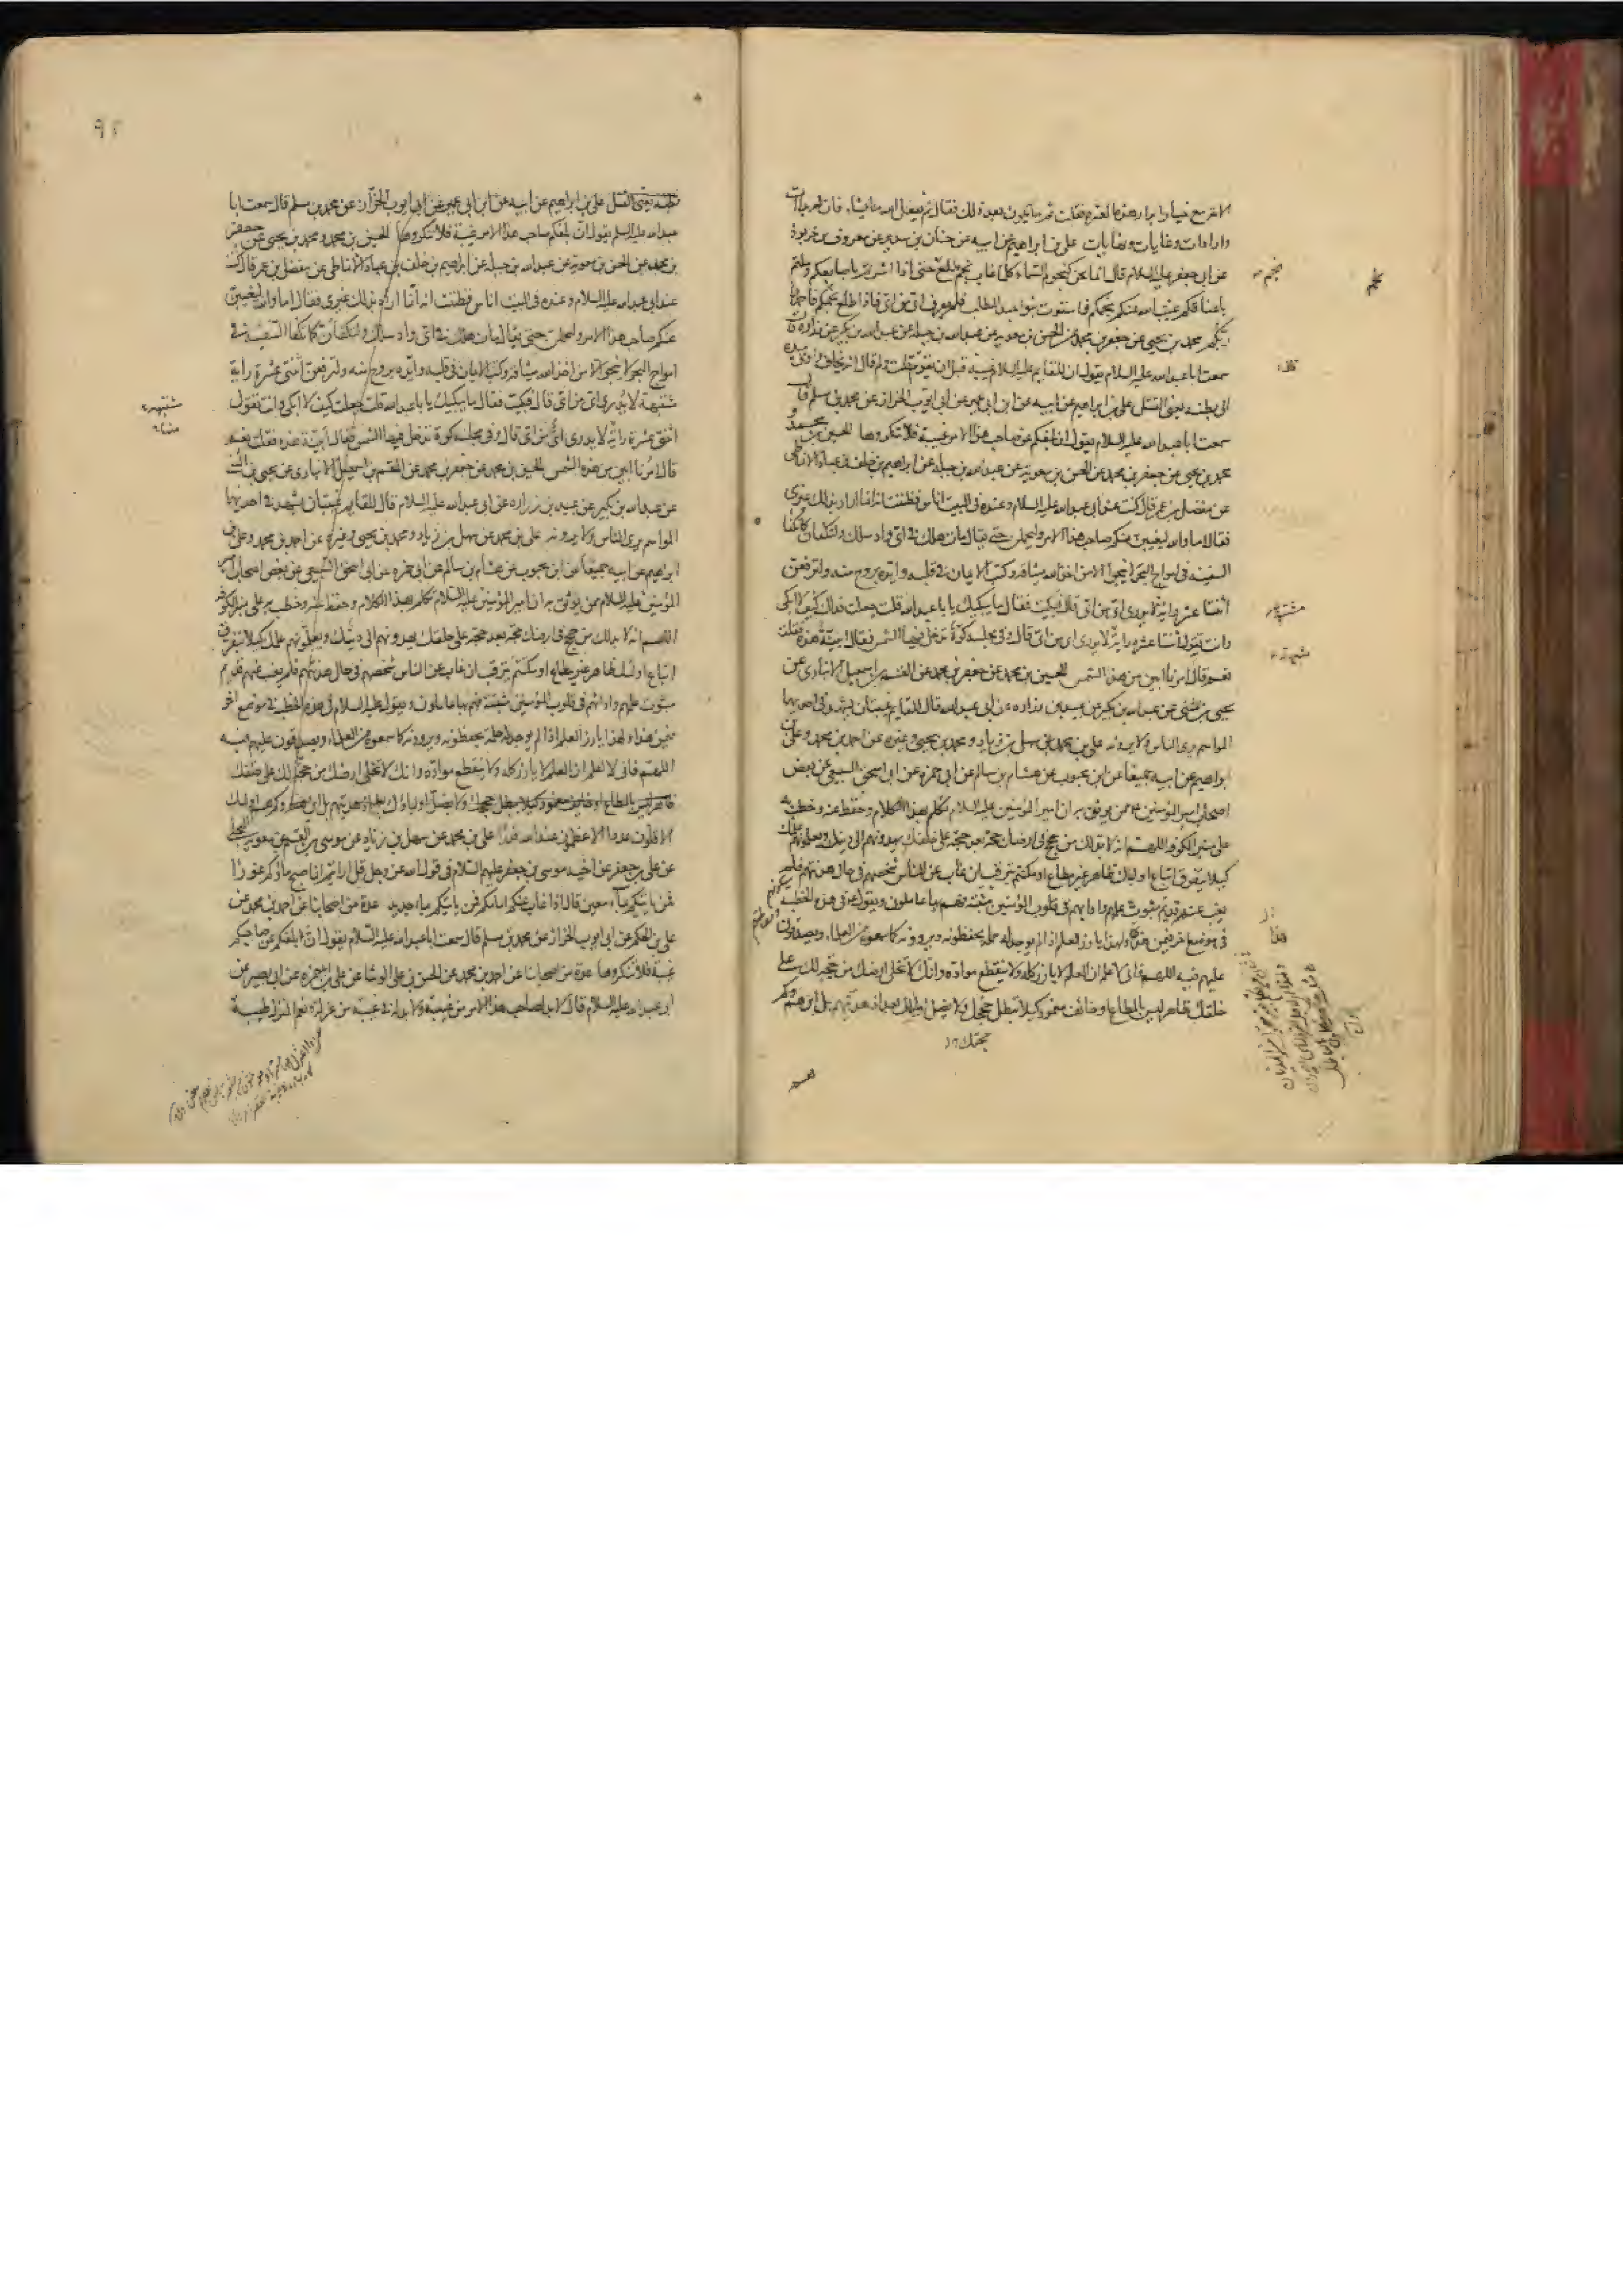 الامر مع خيار ابرار هذه العترة فقلت ثم ما يكون بعد ذلك فقال ثم يفعل الله ما يشاء فان له بداآت
وارادات وغايات ونهايات علي بن ابراهيم عن ابيه عن حنان بن سدير عن معروف بن خربوذ
عن ابي جعفر عليه السلام قال انما نحن كنجوم السماء كلما غاب نجم طلع نجم حتى اذا اشرتم باصابعكم وملتم
باعناقكم غيب الله عنكم نجمكم فاستوت بنو عبد المطلب فلم يعرف اي من اي فاذا طلع نجمكم فاحمدوا
ربكم محمد بن يحيى عن جعفر بن محمد عن الحسن بن معوية عن عبد الله بن جبلة عن عبد الله بن بكير عن زرارة قال
سمعت ابا عبد الله عليه السلام يقول ان للقايم عليه السلام غيبة قبل ان يقوم قلت ولم قال انه يخاف واومى بيده
الى بطنه يعني القتل علي بن ابراهيم عن ابيه عن ابن ابي عمير عن ابي ايوب الخزاز عن محمد بن مسلم قال
سمعت ابا عبد الله عليه السلام يقول ان بلغكم عن صاحب هذا الامر غيبة فلا تنكروها الحسين بن محمد و
محمد بن يحيى عن جعفر بن محمد عن الحسن بن معوية عن عبد الله بن جبلة عن ابراهيم بن خلف بن عباد الانماطي
عن مفضل بن عمر قال كنت عند ابي عبد الله عليه السلام وعنده في البيت اناس فظننت انه انما اراد بذلك غيري
فقال اما والله ليغيبن عنكم صاحب هذا الامر وليخملن حتى يقال مات هلك في اي واد سلك ولتكفان كما تكفا
السفينة في امواج البحر لا ينجو الا من اخذ الله ميثاقه وكتب الايمان في قلبه وايده بروح منه ولترفعن
اثنتا عشر راية لا يدرى اي من اي قال فبكيت فقال ما يبكيك يا با عبد الله قلت جعلت فداك كيف لا ابكي
وانت تقول اثنتا عشره راية لا يدرى اي من اي قال وفي مجلسه كوة تدخل فيها الشمس فقال ابينة هذه فقلت
نعم قال امرنا ابين من هذه الشمس الحسين بن محمد عن جعفر بن محمد عن القسم بن اسمعيل الانباري عن
يحيى بن مثنى عن عبد الله بن بكير عن عبيد بن زراره عن ابي عبد الله قال للقايم غيبتان يشهد في احديهما
المواسم يرى الناس ولا يرونه علي بن محمد عن سهل بن زياد و محمد بن يحيى وغيره عن احمد بن محمد وعلي بن
ابراهيم عن ابيه جميعا عن ابن محبوب عن هشام بن سالم عن ابي حمزه عن ابي اسحق السبيعي عن بعض
اصحاب امير المؤمنين ع ممن يوثق به ان امير المؤمنين عليه السلام تكلم بهذا الكلام وحفظ عنه وخطب به
على منبر الكوفه اللهم انه لا بد لك من حجج في ارضك حجة بعد حجة على خلقك يهدونهم الى دينك ويعلمونهم علمك
كيلا يتفرق اتباع اوليائك ظاهر غير مطاع او مكتتم يترقب ان غاب عن الناس شخصهم في حال هدنتهم فلم
يغب عنهم قديم مبثوث علمهم وادابهم في قلوب المؤمنين مثبتة فهم بها عاملون ويقول ع في هذه الخطبة
في موضع اخر فيمن هذا ولهذا يارز العلم اذا لم يوجد له حملة يحفظونه ويروونه كما سمعوه من العلماء ويصدقون
عليهم فيه اللهم فاني لا علم ان العلم لا يارز كله ولا ينقطع مواده وانك لا تخلي ارضك من حجة لك على
خلقك ظاهر ليس بالمطاع او خائف مغمور كيلا تبطل حججك ولا يضل اولياؤك بعد اذ هديتهم بل اين هم وكم
بطنه يعني القتل علي بن ابراهيم عن ابيه عن ابن ابي عمير عن ابي ايوب الخزاز عن محمد بن مسلم قال سمعت ابا
عبد الله عليه السلم يقول ان بلغكم صاحب هذا الامر غيبة فلا تنكروها الحسين بن محمد ومحمد بن يحيى عن جعفر
بن محمد عن الحسن بن معوية عن عبد الله بن جبلة عن ابراهيم بن خلف بن عباد الانماطي عن مفضل بن عمر قال كنت
عند ابي عبد الله عليه السلام وعنده في البيت اناس فظننت انه انما اراد بذلك غيري فقال اما والله ليغيبن
عنكم صاحب هذا الامر وليخملن حتى يقال مات هلك في اي واد سلك ولتكفان كما تكفا السفينة في
امواج البحر لا ينجو الا من اخذ الله ميثاقه وكتب الايمان في قلبه وايده بروح منه ولترفعن اثنتى عشرة راية
مشتبهة لا يدرى اي من اي قال فبكيت فقال ما يبكيك يا با عبد الله قلت جعلت كيف لا ابكي وانت تقول
اثنتى عشرة راية لا يدرى اي من اي قال وفي مجلسه كوة تدخل فيها الشمس فقال ابينة هذه فقلت نعم
قال امرنا ابين من هذه الشمس الحسين بن محمد عن جعفر بن محمد عن القسم بن اسمعيل الانباري عن يحيى بن المثنى
عن عبد الله بن بكير عن عبيد بن زراره عن ابي عبد الله عليه السلام قال للقايم غيبتان يشهد في احديهما
المواسم يرى الناس ولا يرونه علي بن محمد عن سهل بن زياد ومحمد بن يحيى وغيره عن احمد بن محمد وعلي بن
ابراهيم عن ابيه جميعا عن ابن محبوب عن هشام بن سالم عن ابي حمزه عن ابي اسحق السبيعي عن بعض اصحاب امير
المؤمنين عليه السلام ممن يوثق به ان امير المؤمنين عليه السلام تكلم بهذا الكلام وحفظ عنه وخطب به على منبر الكوفة
اللهم انه لا بد لك من حجج في ارضك حجة بعد حجة على خلقك يهدونهم الى دينك ويعلمونهم علمك كيلا يتفرق
اتباع اوليائك ظاهر غير مطاع او مكتتم يترقب ان غاب عن الناس شخصهم في حال هدنتهم فلم يغب عنهم قديم
مبثوث علمهم وادابهم في قلوب المؤمنين مثبتة فهم بها عاملون ويقول عليه السلام في هذه الخطبة في موضع اخر
فيمن هذا ولهذا يارز العلم اذا لم يوجد له حملة يحفظونه ويروونه كما سمعوه من العلماء ويصدقون عليهم فيه
اللهم فاني لا علم ان العلم لا يارز كله ولا ينقطع مواده وانك لا تخلي ارضك من حجة لك على خلقك
ظاهر ليس بالمطاع او خائف مغمور كيلا يبطل حججك ولا يضل اولياؤك بعد اذ هديتهم بل اين هم وكم هم اولئك
الاقلون عددا الاعظمون عند الله قدرا علي بن محمد عن سهل بن زياد عن موسى بن القسم بن معوية البجلي
عن علي بن جعفر عن اخيه موسى بن جعفر عليهم السلام في قول الله عز وجل قل ارايتم ان اصبح ماؤكم غورا
فمن ياتيكم بماء معين قال اذا غاب عنكم امامكم فمن ياتيكم بامام جديد عدة من اصحابنا عن احمد بن محمد عن
علي بن الحكم عن ابي ايوب الخزاز عن محمد بن مسلم قال سمعت ابا عبد الله عليه السلام يقول ان بلغكم عن صاحبكم
غيبة فلا تنكروها عدة من اصحابنا عن احمد بن محمد عن الحسن بن علي الوشا عن علي بن ابي حمزه عن ابي بصير عن
ابي عبد الله عليه السلام قال لا بد لصاحب هذا الامر من غيبة ولا بد له في غيبته من عزلة ونعم المنزل طيبة